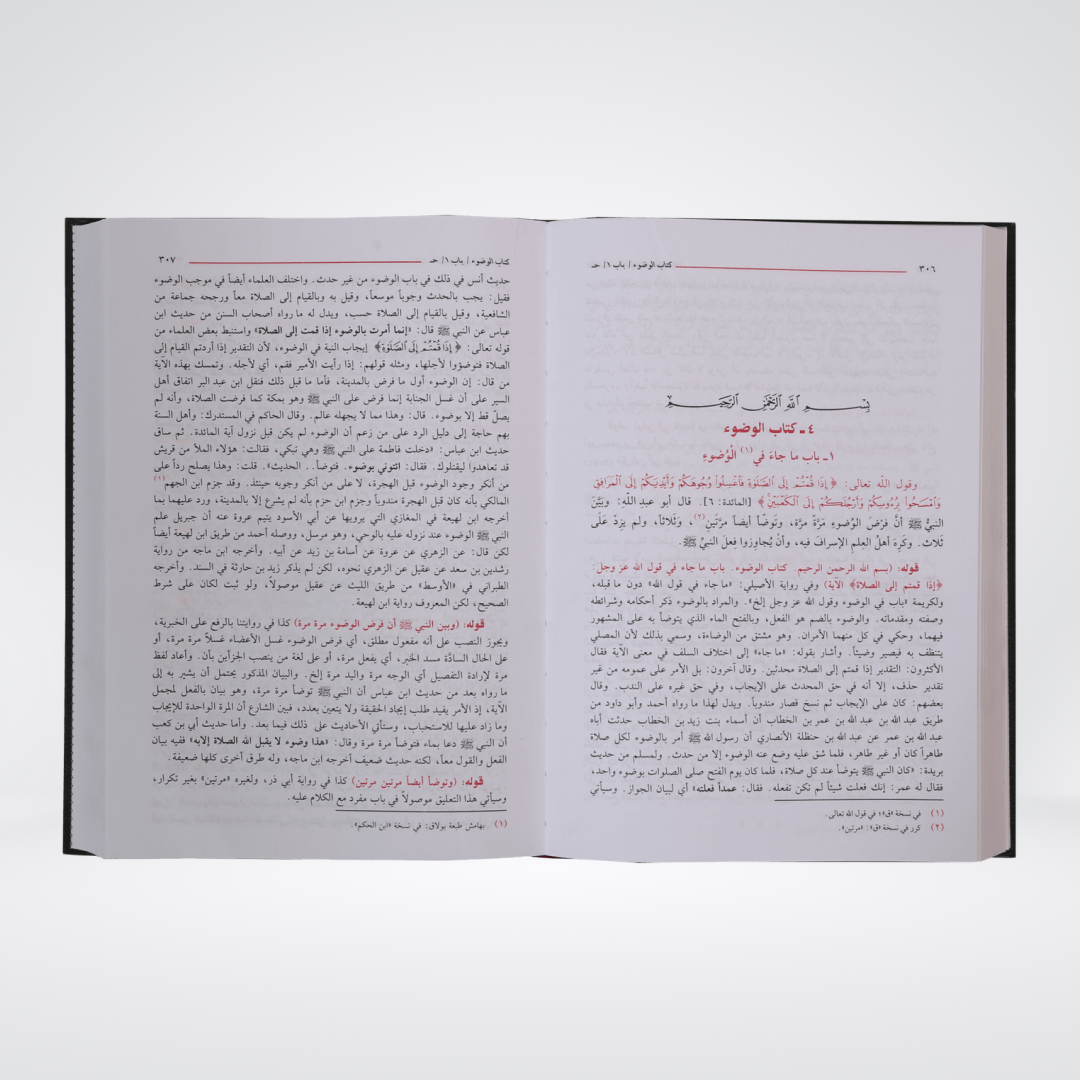 ٣٠٦
كتاب الوضوء / باب ١/ حـ
بِسْمِ اللَّهِ الرَّحْمَٰنِ الرَّحِيمِ
٤ ـ كتاب الوضوء
١ـ باب ما جاءَ في(١) الْوُضوءِ
وقول اللّه تعالى: ﴿إِذَا قُمْتُمْ إِلَى ٱلصَّلَوٰةِ فَٱغْسِلُوا۟ وُجُوهَكُمْ وَأَيْدِيَكُمْ إِلَى ٱلْمَرَافِقِ
وَٱمْسَحُوا۟ بِرُءُوسِكُمْ وَأَرْجُلَكُمْ إِلَى ٱلْكَعْبَيْنِ﴾ [المائدة: ٦]. قال أبو عبد اللّه: وبَيَّنَ
النبيُّ ﷺ أنَّ فَرْضَ الوُضوءِ مَرَّةً مرَّة، وتَوضَّأ أيضاً مرَّتَينِ(٢)، وثلاثاً، ولم يزِدْ عَلَى
ثلاث. وكَرِهَ أهلُ العِلمِ الإسرافَ فيه، وأنْ يُجاوِزوا فِعلَ النبيِّ ﷺ.
قوله: (بسم الله الرحمن الرحيم. كتاب الوضوء. باب ما جاء في قول الله عز وجل:
﴿إذا قمتم إلى الصلاة﴾ الآية) وفي رواية الأصيلي: «ما جاء في قول الله» دون ما قبله،
ولكريمة «باب في الوضوء وقول الله عز وجل إلخ». والمراد بالوضوء ذكر أحكامه وشرائطه
وصفته ومقدماته. والوضوء بالضم هو الفعل، وبالفتح الماء الذي يتوضأ به على المشهور
فيهما، وحكي في كل منهما الأمران. وهو مشتق من الوضاءة، وسمي بذلك لأن المصلي
يتنظف به فيصير وضيئاً. وأشار بقوله: «ما جاء» إلى اختلاف السلف في معنى الآية فقال
الأكثرون: التقدير إذا قمتم إلى الصلاة محدثين. وقال آخرون: بل الأمر على عمومه من غير
تقدير حذف، إلا أنه في حق المحدث على الإيجاب، وفي حق غيره على الندب. وقال
بعضهم: كان على الإيجاب ثم نسخ فصار مندوباً. ويدل لهذا ما رواه أحمد وأبو داود من
طريق عبد الله بن عبد الله بن عمر بن الخطاب أن أسماء بنت زيد بن الخطاب حدثت أباه
عبد الله بن عمر عن عبد الله بن حنظلة الأنصاري أن رسول الله ﷺ أمر بالوضوء لكل صلاة
طاهراً كان أو غير طاهر، فلما شق عليه وضع عنه الوضوء إلا من حدث. ولمسلم من حديث
بريدة: «كان النبي ﷺ يتوضأ عند كل صلاة، فلما كان يوم الفتح صلى الصلوات بوضوء واحد،
فقال له عمر: إنك فعلت شيئاً لم تكن تفعله. فقال: عمداً فعلته» أي لبيان الجواز. وسيأتي
(١) في نسخة «ق»؛ في قول الله تعالى.
(٢) كرر في نسخة «ق»: «مرتين».
كتاب الوضوء / باب ١/ حـ
٣٠٧
حديث أنس في ذلك في باب الوضوء من غير حدث. واختلف العلماء أيضاً في موجب الوضوء
فقيل: يجب بالحدث وجوباً موسعاً، وقيل به وبالقيام إلى الصلاة معاً ورجحه جماعة من
الشافعية، وقيل بالقيام إلى الصلاة حسب، ويدل له ما رواه أصحاب السنن من حديث ابن
عباس عن النبي ﷺ قال: «إنما أمرت بالوضوء إذا قمت إلى الصلاة» واستنبط بعض العلماء من
قوله تعالى: ﴿إِذَا قُمْتُمْ إِلَى ٱلصَّلَوٰةِ﴾ إيجاب النية في الوضوء، لأن التقدير إذا أردتم القيام إلى
الصلاة فتوضؤوا لأجلها، ومثله قولهم: إذا رأيت الأمير فقم، أي لأجله. وتمسك بهذه الآية
من قال: إن الوضوء أول ما فرض بالمدينة، فأما ما قبل ذلك فنقل ابن عبد البر اتفاق أهل
السير على أن غسل الجنابة إنما فرض على النبي ﷺ وهو بمكة كما فرضت الصلاة، وأنه لم
يصلّ قط إلا بوضوء. قال: وهذا مما لا يجهله عالم. وقال الحاكم في المستدرك: وأهل السنة
بهم حاجة إلى دليل الرد على من زعم أن الوضوء لم يكن قبل نزول آية المائدة. ثم ساق
حديث ابن عباس: «دخلت فاطمة على النبي ﷺ وهي تبكي، فقالت: هؤلاء الملأ من قريش
قد تعاهدوا ليقتلوك. فقال: ائتوني بوضوء. فتوضأ. . الحديث». قلت: وهذا يصلح رداً على
من أنكر وجود الوضوء قبل الهجرة، لا على من أنكر وجوبه حينئذ. وقد جزم ابن الجهم(١)
المالكي بأنه كان قبل الهجرة مندوباً وجزم ابن حزم بأنه لم يشرع إلا بالمدينة، ورد عليهما بما
أخرجه ابن لهيعة في المغازي التي يرويها عن أبي الأسود يتيم عروة عنه أن جبريل علم
النبي ﷺ الوضوء عند نزوله عليه بالوحي، وهو مرسل، ووصله أحمد من طريق ابن لهيعة أيضاً
لكن قال: عن الزهري عن عروة عن أسامة بن زيد عن أبيه. وأخرجه ابن ماجه من رواية
رشدين بن سعد عن عقيل عن الزهري نحوه، لكن لم يذكر زيد بن حارثة في السند. وأخرجه
الطبراني في «الأوسط» من طريق الليث عن عقيل موصولاً، ولو ثبت لكان على شرط
الصحيح، لكن المعروف رواية ابن لهيعة.
قوله: (وبين النبي ﷺ أن فرض الوضوء مرة مرة) كذا في روايتنا بالرفع على الخبرية،
ويجوز النصب على أنه مفعول مطلق، أي فرض الوضوء غسل الأعضاء غسلاً مرة مرة، أو
على الحال السادّة مسد الخبر، أي يفعل مرة، أو على لغة من ينصب الجزأين بأن. وأعاد لفظ
مرة لإرادة التفصيل أي الوجه مرة واليد مرة إلخ. والبيان المذكور يحتمل أن يشير به إلى
ما رواه بعد من حديث ابن عباس أن النبي ﷺ توضأ مرة مرة، وهو بيان بالفعل لمجمل
الآية، إذ الأمر يفيد طلب إيجاد الحقيقة ولا يتعين بعدد، فبين الشارع أن المرة الواحدة للإيجاب
وما زاد عليها للاستحباب، وستأتي الأحاديث على ذلك فيما بعد. وأما حديث أبي بن كعب
أن النبي ﷺ دعا بماء فتوضأ مرة مرة وقال: «هذا وضوء لا يقبل الله الصلاة إلابه» ففيه بيان
الفعل والقول معاً، لكنه حديث ضعيف أخرجه ابن ماجه، وله طرق أخرى كلها ضعيفة.
قوله: (وتوضأ أيضاً مرتين مرتين) كذا في رواية أبي ذر، ولغيره «مرتين» بغير تكرار،
وسيأتي هذا التعليق موصولاً في باب مفرد مع الكلام عليه.
(١) بهامش طبعة بولاق: في نسخة «ابن الحكم».